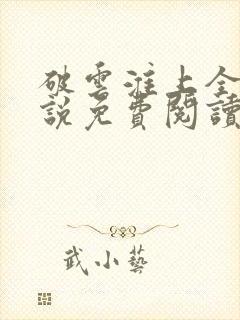 破雲淮上全
說免費閱讀
武小藝